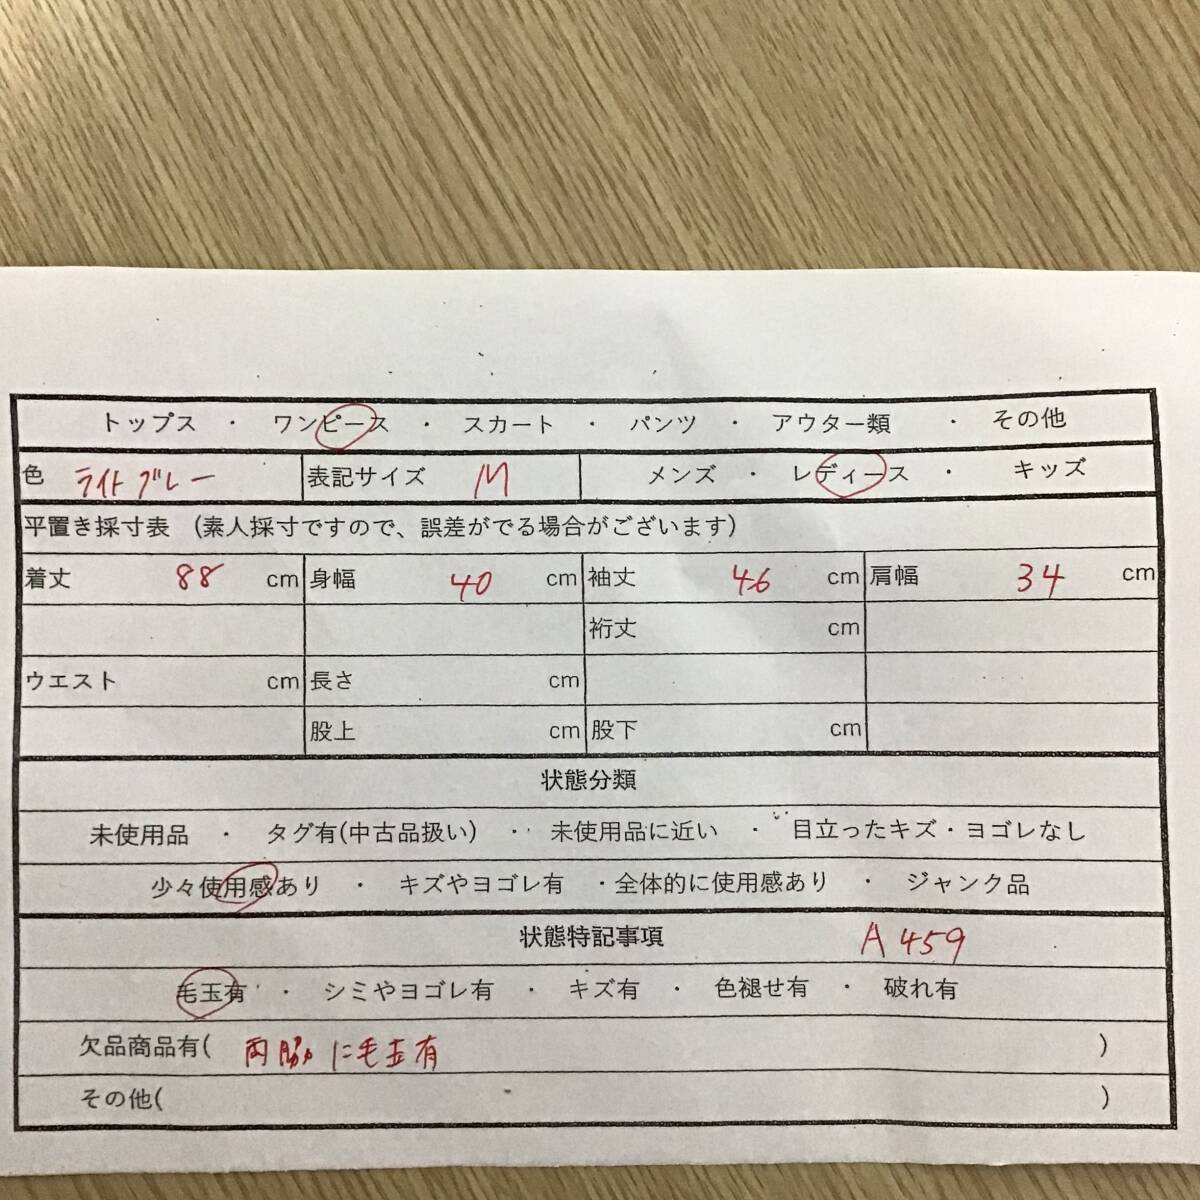 トップス ・ ワンピース ・ スカート ・ パンツ ・ アウター類 ・ その他
色 ライトグレー 表記サイズ M メンズ ・ レディース ・ キッズ
平置き採寸表 (素人採寸ですので、誤差がでる場合がございます)
着丈 88 cm 身幅 40 cm 袖丈 46 cm 肩幅 34 cm
裄丈 cm
ウエスト cm 長さ cm
股上 cm 股下 cm
状態分類
未使用品 ・ タグ有(中古品扱い) ・ 未使用品に近い ・ 目立ったキズ・ヨゴレなし
少々使用感あり ・ キズやヨゴレ有 ・全体的に使用感あり ・ ジャンク品
状態特記事項 A459
毛玉有 ・ シミやヨゴレ有 ・ キズ有 ・ 色褪せ有 ・ 破れ有
欠品商品有( 両脇に毛玉有 )
その他( )